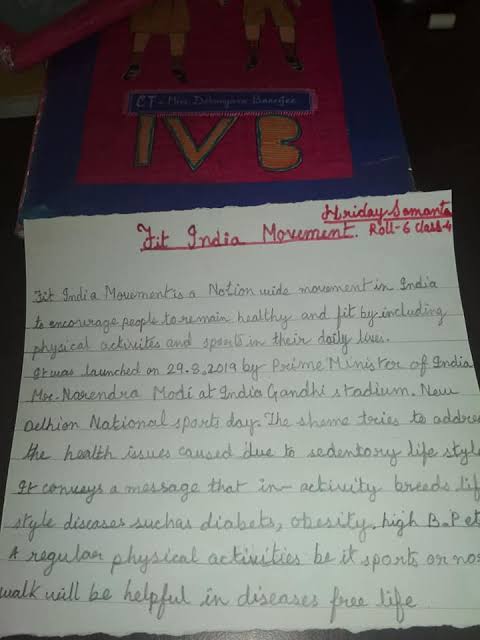 CT - Mrs. Debanjana Banerjee
IV B
Hriday Samanta
Fit India Movement. Roll-6 Class-4
Fit India Movement is a Nation wide movement in India
to encourage people to remain healthy and fit by including
physical activites and sports in their daily lives.
It was launched on 29.8.2019 by Prime Minister of India
Mr. Narendra Modi at India Gandhi stadium. New
Delhion National sports day. The sheme tries to addre
the health issues caused due to sedentory life style
It conveys a message that in-activity breeds life
style diseases suchas diabets, obesity, high B.P et
A regular physical activities be it sports or nor
walk will be helpful in diseases free life